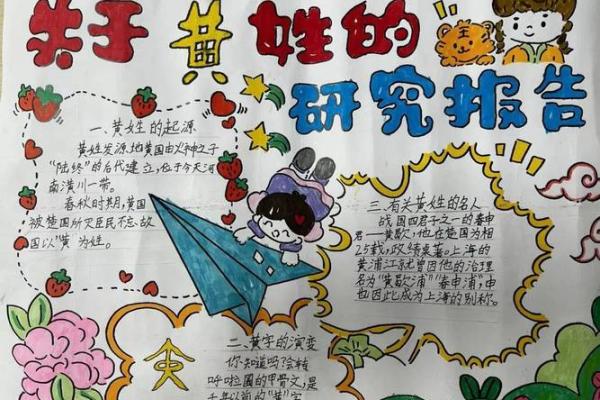 关于黄姓的
研究报告
一、黄姓的起源
黄姓发源地黄国由火神之子
“陆终”的后代建立,位于今天河
南潢川一带。
春秋时期,黄国
被楚国所灭臣民不忘故
国以“黄”为姓。
三、有关黄姓的名人
战国四君子之一的春申
君——黄歇,他在楚国为相
25载,政绩卓著。上海的
黄浦江就曾因他的治理
名为“黄歇浦”“春申浦”,申
也因此成为上海的别称。
二、黄字的演变
你知道吗?会转
呼啦圈的甲骨文,是
千年以前的“黄”字